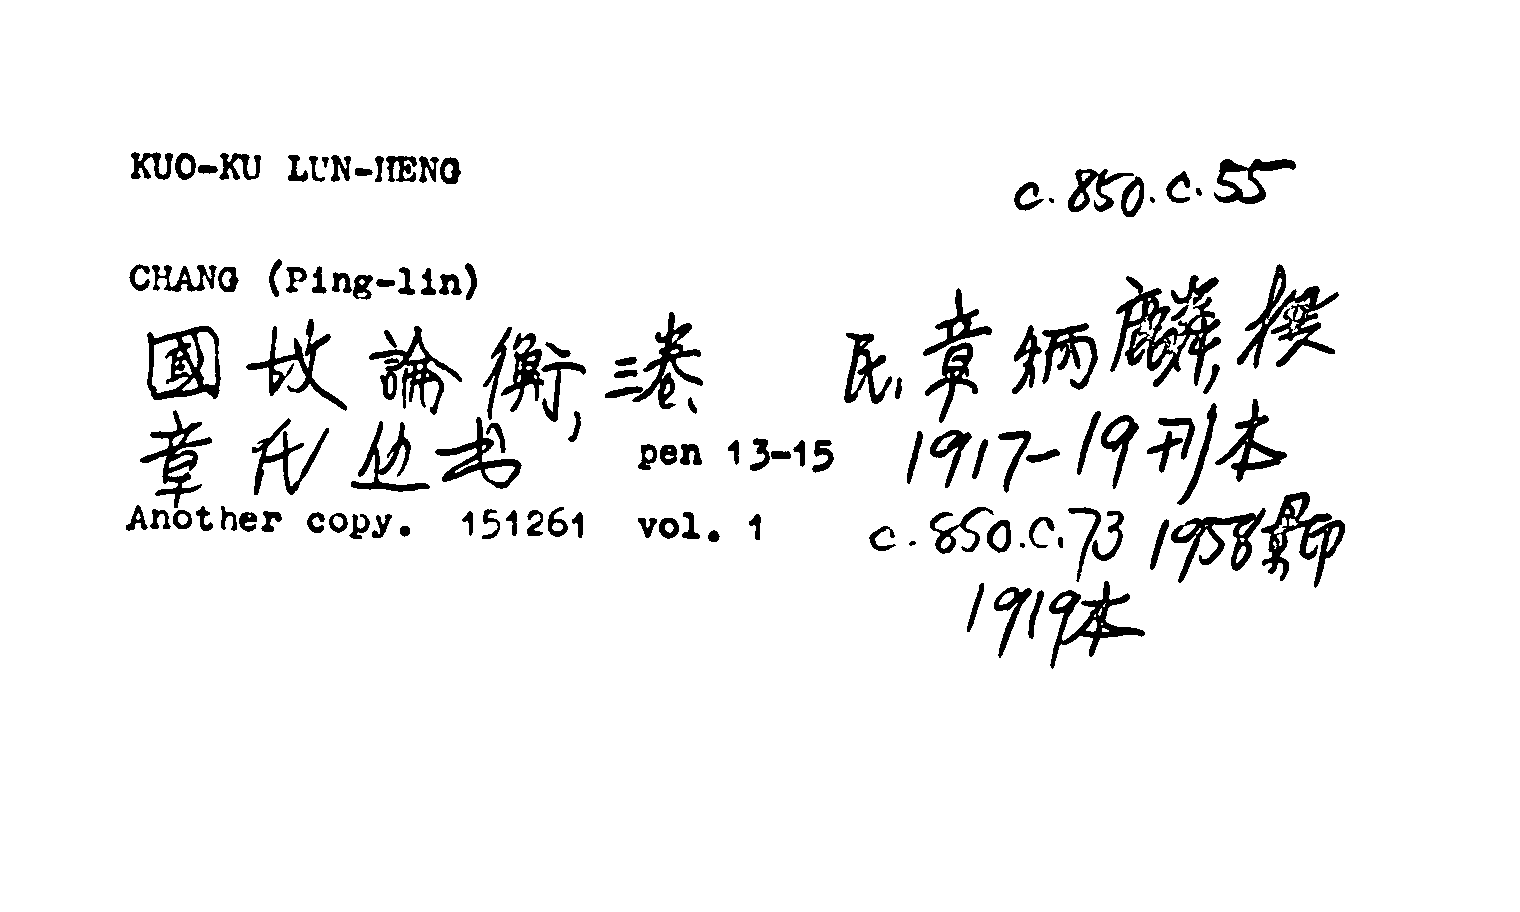 KUO-KU LUN-HENG c.850.c.55
CHANG (Ping-lin)
國故論衡,三卷、 民、章炳麟,撰
章氏丛书 pen 13-15 1917-19刊本
Another copy. 151261 vol. 1 c.850.c.73 1958景印
1919本